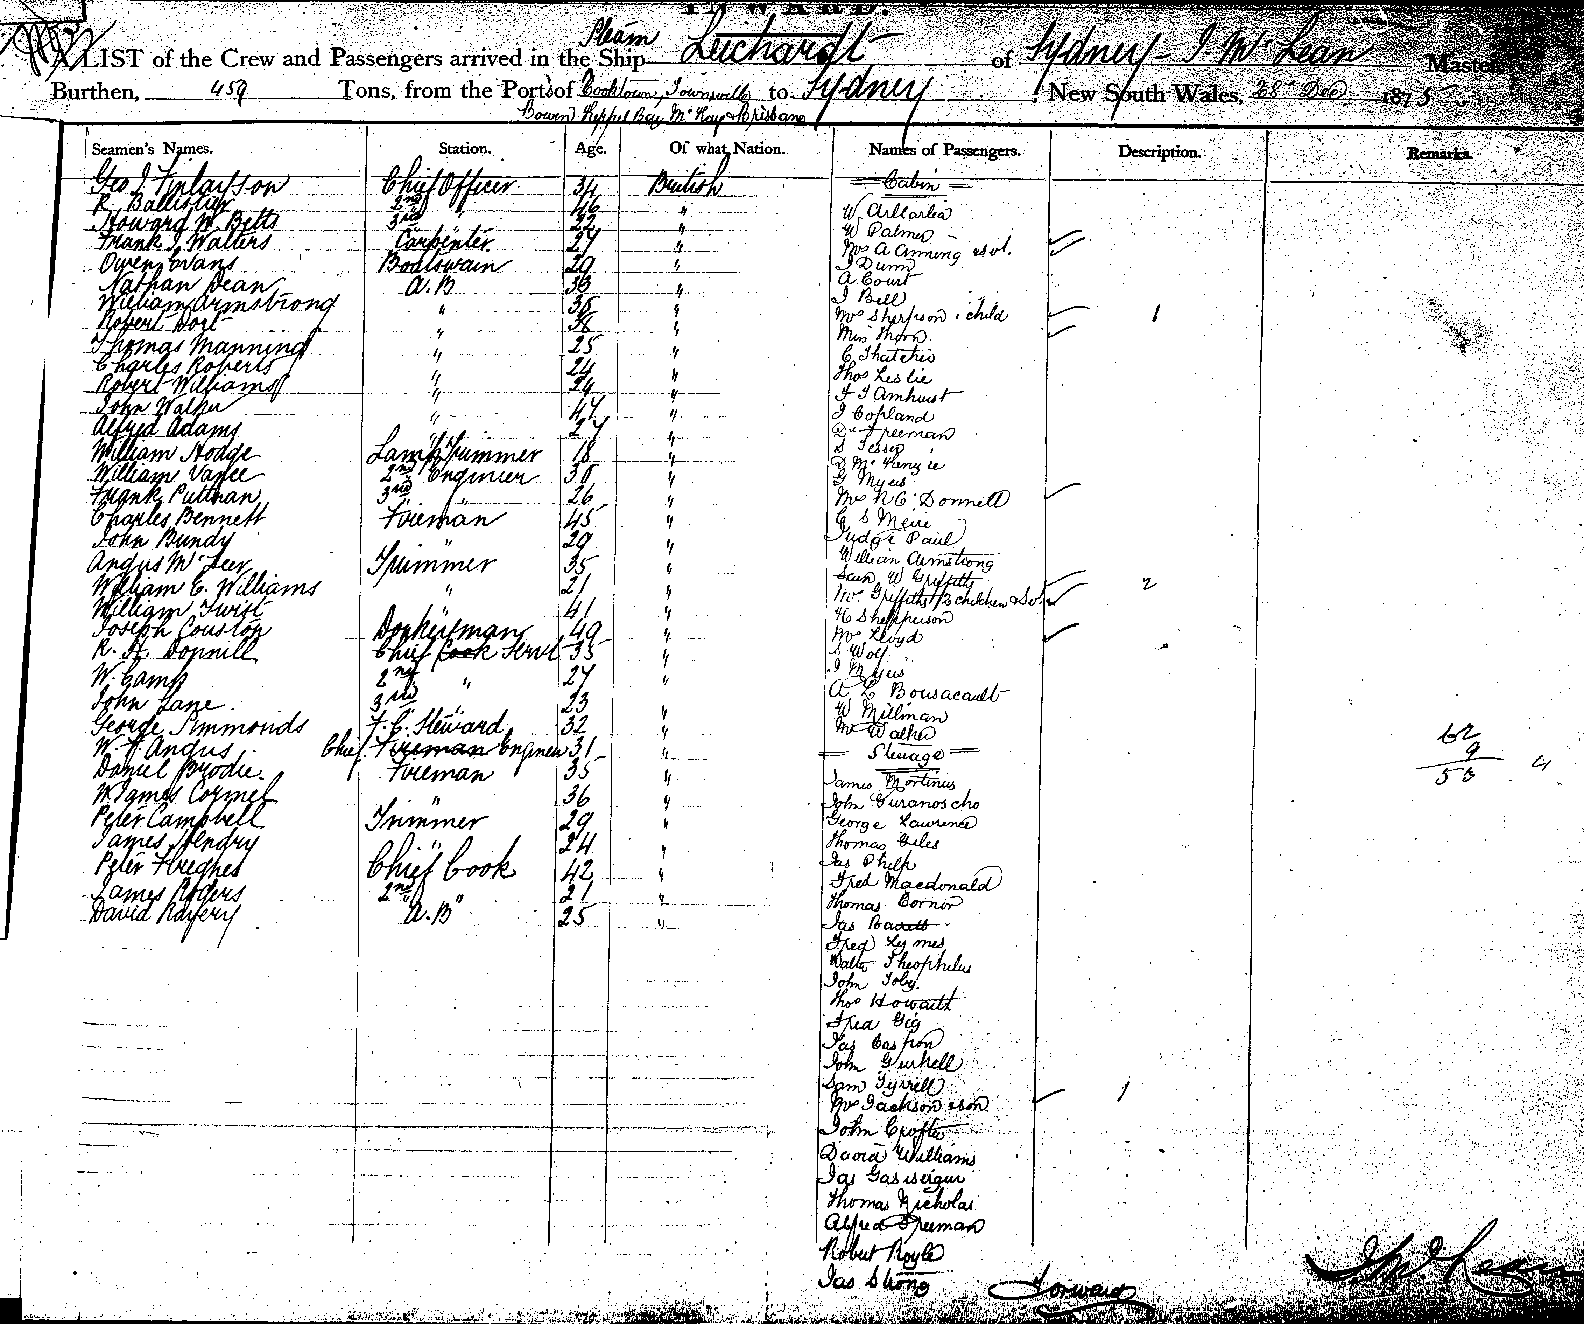 INWARD.
A LIST of the Crew and Passengers arrived in the Ship Steam Leichardt of Sydney - J. McLean Master
Burthen, 459 Tons, from the Ports of Cooktown, Townsville to Sydney New South Wales, 28 Dec 1875
Bowen Keppel Bay McKay & Brisbane
Seamen's Names. Station. Age. Of what Nation. Names of Passengers. Description. Remarks.
Geo J. Finlayson Chief Officer 34 British
R. Ballister 2nd " 46 "
Howard W. Betts 3rd " 22 "
Frank J. Walters Carpenter 27 "
Owen Evans Boatswain 29 "
Nathan Dean A.B 33 "
William Armstrong " 38 "
Robert " 38 "
Thomas Manning " 25 "
Charles Roberts " 24 "
Robert Williams " 24 "
John Walker " 47 "
Alfred Adams " 27 "
William Hodge Lamp Trimmer 18 "
William 2nd Engineer 38 "
Frank Putman 3rd " 26 "
Charles Bennett Fireman 45 "
John Bundy " 29 "
Angus McLeer Trimmer 35 "
William E. Williams " 21 "
William Twist " 41 "
Joseph Couston Donkeyman 49 "
R. H. Chief Cook Stewd 35 "
W. Camp 2nd " 27 "
John Lane 3rd " 23 "
George Simmonds F.C. Steward 32 "
W. F. Angus Chief Fireman Engineer 31 "
Daniel Brodie Fireman 35 "
W. James Cormel " 36 "
Peter Campbell Trimmer 29 "
James Hendry " 24 "
Peter Hughes Chief Cook 42 "
James Rogers 2nd " 21 "
David Rafery A.B 25 "
Cabin
W
W Palmer
Mrs A Anning & svt.
J Dunn
A Court
J Bell
Mrs Shepson & child 1
Miss Thorn
C Thatcher
Thos Leslie
F J Amhurst
J Copland
Dr Freeman
S Jessop
D McKenzie
G Myers
Mrs R C Donnell
C S Mein
Judge Paul
William Armstrong
Sam W Griffiths
Mrs Griffiths 2 children & svt 2
H Shepperson
Mrs Lloyd
S Wolf
J Myers
A L Bousacault
W Millman
Mr Walker
Steerage
James Mortinus
John Guranoscho
George Lawrence
Thomas Giles
Jas Phelp
Fred Macdonald
Thomas Connor
Jas
Fred Lymes
Walter Theophilus
John Toby
Thos Howarth
Fred Gig
Jas Caspon
John Gurkell
Sam Tyrrell
Mrs Jackson & son 1
John Crofter
David Williams
Jas
Thomas Nicholas
Alfred Freeman
Robert Royle
Jas Strong
Forward
62
9
53 4
J McLean